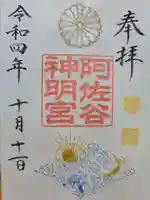 奉拝
阿佐谷
神明宮
令和四年
十月十一日